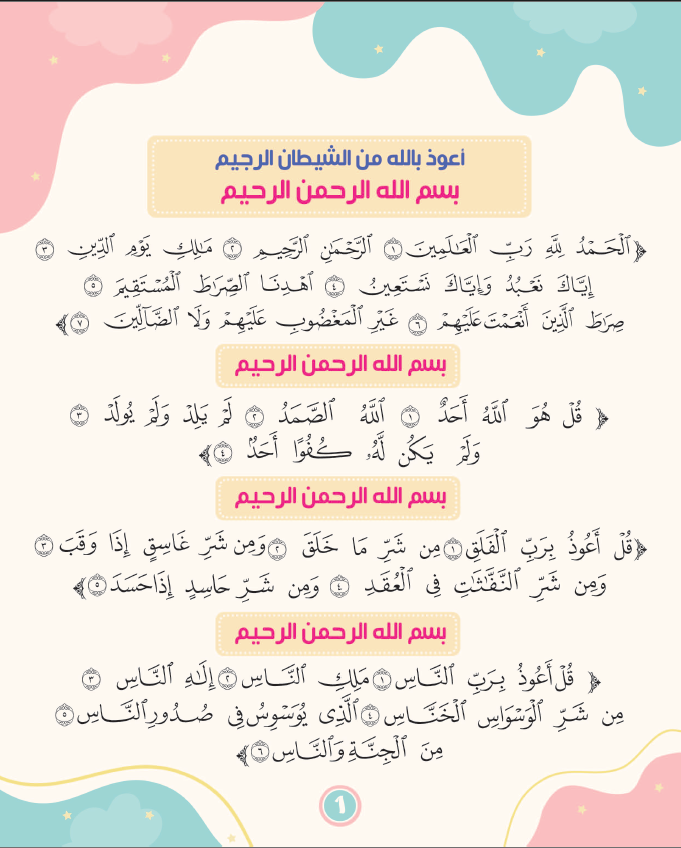 أعوذ بالله من الشيطان الرجيم
بسم الله الرحمن الرحيم
﴿الْحَمْدُ لِلَّهِ رَبِّ الْعَـٰلَمِينَ ١ الرَّحْمَـٰنِ الرَّحِيمِ ٢ مَـٰلِكِ يَوْمِ الدِّينِ ٣
إِيَّاكَ نَعْبُدُ وَإِيَّاكَ نَسْتَعِينُ ٤ اهْدِنَا الصِّرَٰطَ الْمُسْتَقِيمَ ٥
صِرَٰطَ الَّذِينَ أَنْعَمْتَ عَلَيْهِمْ ٦ غَيْرِ الْمَغْضُوبِ عَلَيْهِمْ وَلَا الضَّالِّينَ ٧﴾
بسم الله الرحمن الرحيم
﴿ قُلْ هُوَ اللَّهُ أَحَدٌ ١ اللَّهُ الصَّمَدُ ٢ لَمْ يَلِدْ وَلَمْ يُولَدْ ٣
وَلَمْ يَكُن لَّهُ كُفُوًا أَحَدٌ ٤﴾
بسم الله الرحمن الرحيم
﴿قُلْ أَعُوذُ بِرَبِّ الْفَلَقِ ١ مِن شَرِّ مَا خَلَقَ ٢ وَمِن شَرِّ غَاسِقٍ إِذَا وَقَبَ ٣
وَمِن شَرِّ النَّفَّـٰثَـٰتِ فِى الْعُقَدِ ٤ وَمِن شَرِّ حَاسِدٍ إِذَا حَسَدَ ٥﴾
بسم الله الرحمن الرحيم
﴿ قُلْ أَعُوذُ بِرَبِّ النَّاسِ ١ مَلِكِ النَّاسِ ٢ إِلَـٰهِ النَّاسِ ٣
مِن شَرِّ الْوَسْوَاسِ الْخَنَّاسِ ٤ الَّذِى يُوَسْوِسُ فِى صُدُورِ النَّاسِ ٥
مِنَ الْجِنَّةِ وَالنَّاسِ ٦﴾
1